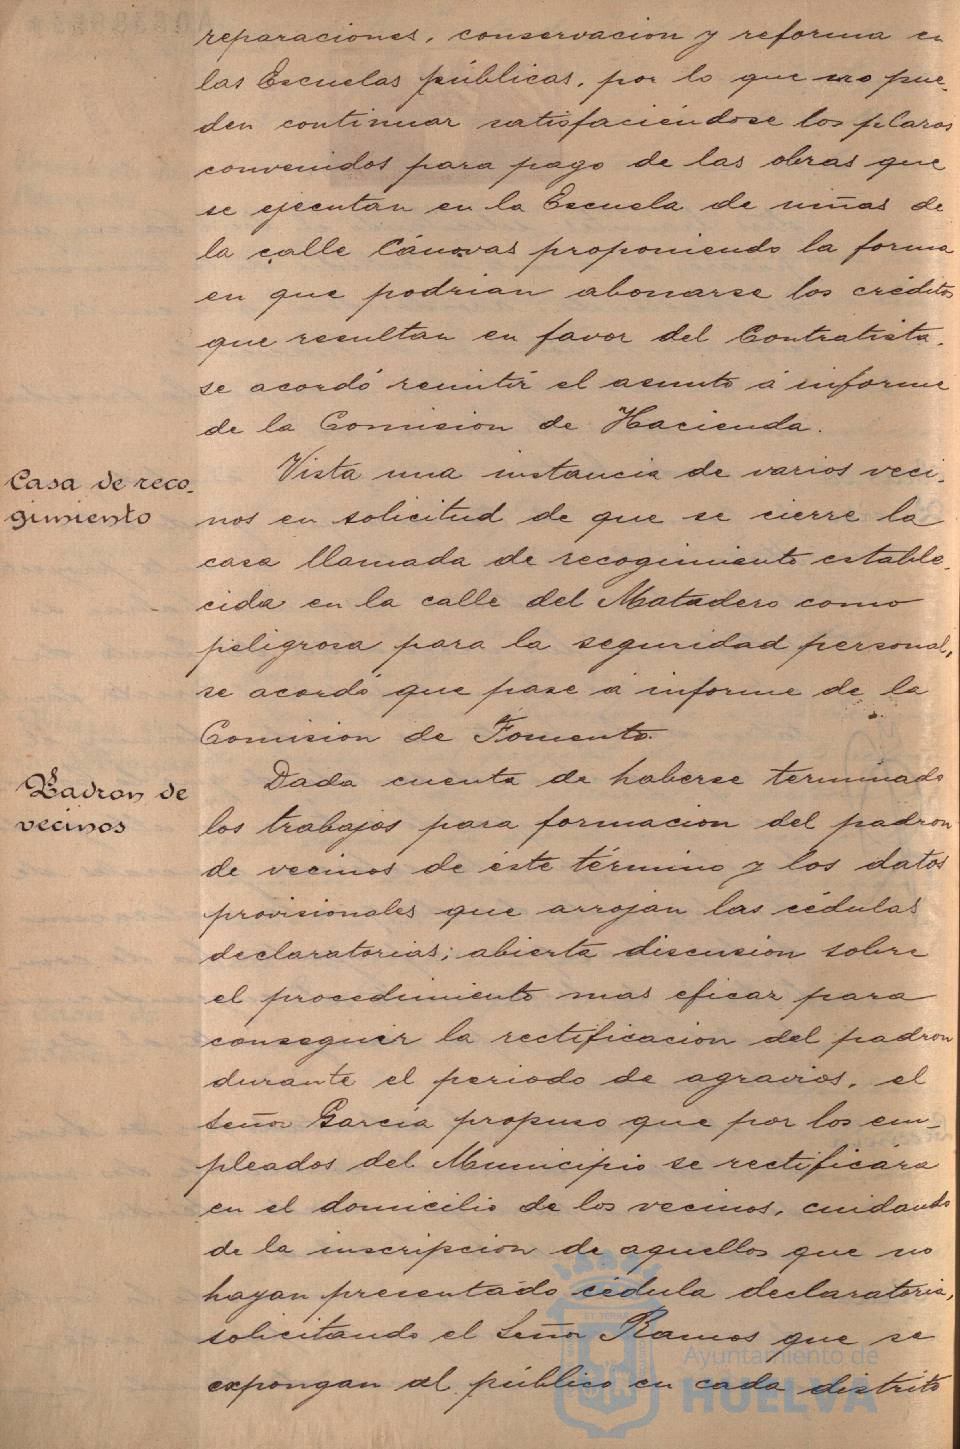 reparaciones, conservacion y reforma en
las Escuelas públicas, por lo que no pue-
den continuar satisfaciéndose los plazos
convenidos para pago de las obras que
se ejecutan en la Escuela de niñas de
la calle Cánovas proponiendo la forma
en que podrian abonarse los créditos
que resultan en favor del Contratista,
se acordó remitir el asunto á informe
de la Comision de Hacienda.
Casa de reco-
gimiento
Vista una instancia de varios veci-
nos en solicitud de que se cierre la
casa llamada de recogimiento estable-
cida en la calle del Matadero como
peligrosa para la seguridad personal,
se acordó que pase á informe de la
Comision de Fomento.
Padron de
vecinos
Dada cuenta de haberse terminado
los trabajos para formacion del padron
de vecinos de éste término y los datos
provisionales que arrojan las cédulas
declaratorias; abierta discusion sobre
el procedimiento mas eficaz para
conseguir la rectificacion del padron
durante el periodo de agravios, el
Señor García propuso que por los em-
pleados del Municipio se rectificára
en el domicilio de los vecinos, cuidando
de la inscripcion de aquellos que no
hayan presentado cédula declaratoria,
solicitando el Señor Ramos que se
expongan al público en cada distrito
Ayuntamiento de
HUELVA